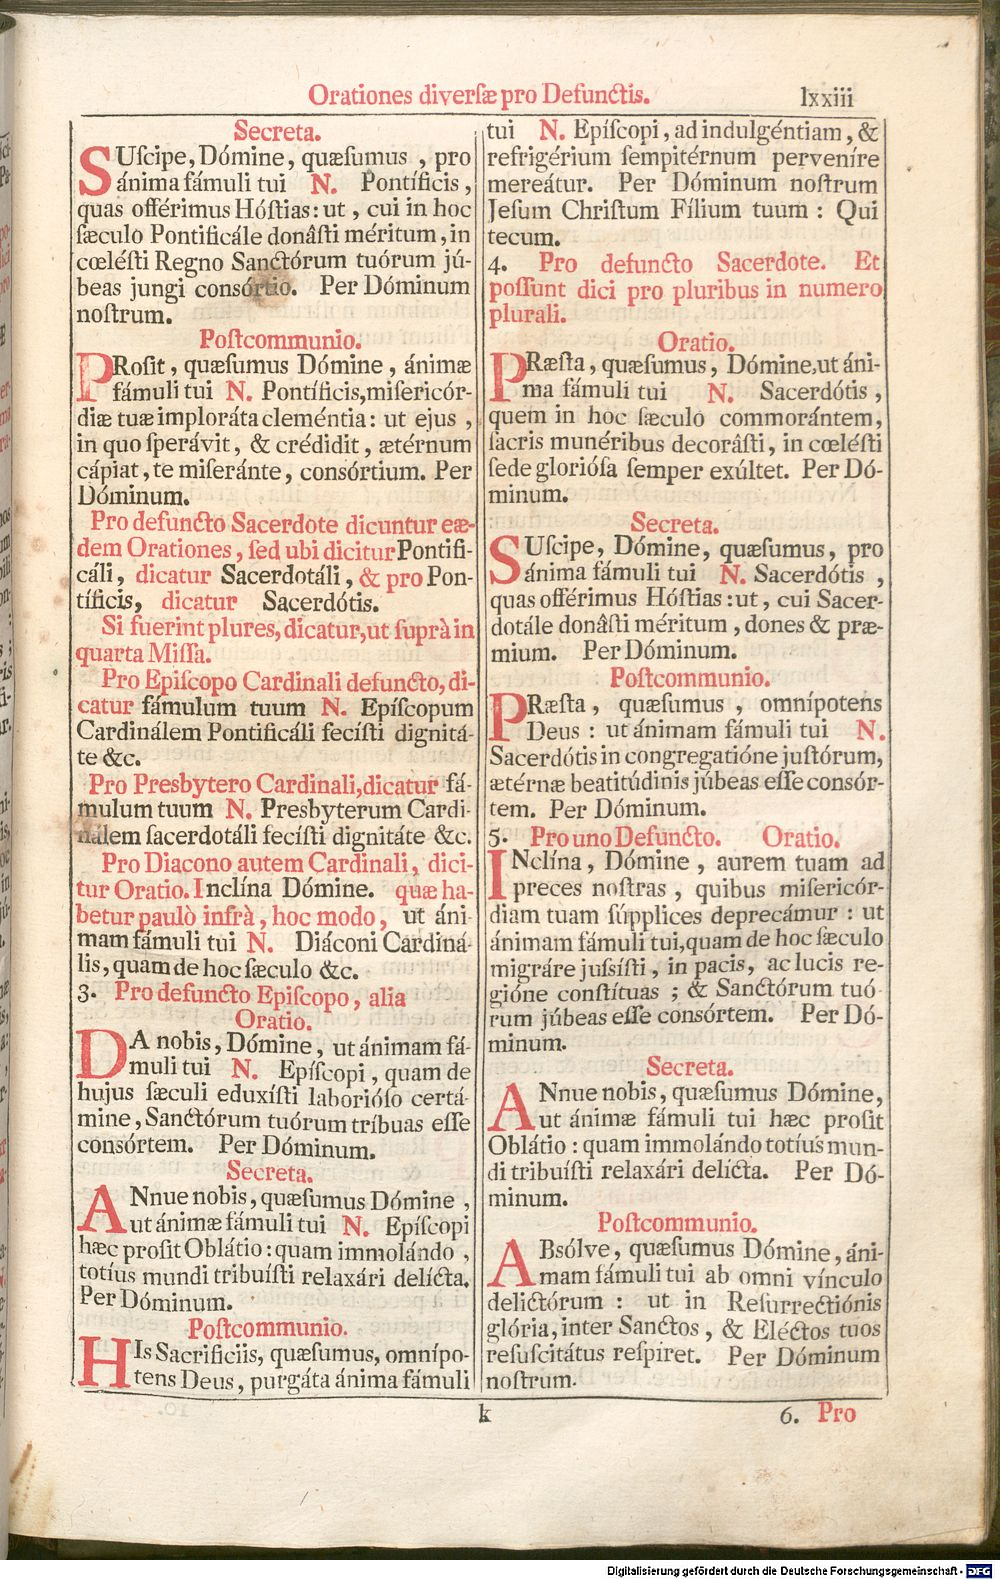 Orationes diverſæ pro Defunctis. lxxiii
Secreta.
SUſcipe, Dómine, quæſumus, pro
ánima fámuli tui N. Pontíficis,
quas offérimus Hóſtias: ut, cui in hoc
ſæculo Pontificále donâſti méritum, in
cœléſti Regno Sanctórum tuórum jú-
beas jungi consórtio. Per Dóminum
noſtrum.
Poſtcommunio.
PRoſit, quæſumus Dómine, ánimæ
fámuli tui N. Pontíficis, miſericór-
diæ tuæ imploráta cleméntia: ut ejus,
in quo ſperávit, & crédidit, ætérnum
cápiat, te miſeránte, consórtium. Per
Dóminum.
Pro defuncto Sacerdote dicuntur eæ-
dem Orationes, ſed ubi dicitur Pontifi-
cáli, dicatur Sacerdotáli, & pro Pon-
tíficis, dicatur Sacerdótis.
Si fuerint plures, dicatur, ut ſuprà in
quarta Miſſa.
Pro Epiſcopo Cardinali defuncto, di-
catur fámulum tuum N. Epíſcopum
Cardinálem Pontificáli fecíſti dignitá-
te &c.
Pro Presbytero Cardinali, dicatur fá-
mulum tuum N. Presbyterum Cardi-
nálem ſacerdotáli fecíſti dignitáte &c.
Pro Diacono autem Cardinali, dici-
tur Oratio. Inclína Dómine. quæ ha-
betur paulò infrà, hoc modo, ut áni-
mam fámuli tui N. Diáconi Cardiná-
lis, quam de hoc ſæculo &c.
3. Pro defuncto Epiſcopo, alia
Oratio.
DA nobis, Dómine, ut ánimam fá-
muli tui N. Epíſcopi, quam de
hujus ſæculi eduxíſti laborióſo certá-
mine, Sanctórum tuórum tríbuas eſſe
consórtem. Per Dóminum.
Secreta.
ANnue nobis, quæſumus Dómine,
ut ánimæ fámuli tui N. Epíſcopi
hæc proſit Oblátio: quam immolándo,
totíus mundi tribuíſti relaxári delícta.
Per Dóminum.
Poſtcommunio.
HIs Sacrificiis, quæſumus, omnípo-
tens Deus, purgáta ánima fámuli
tui N. Epíſcopi, ad indulgéntiam, &
refrigérium ſempitérnum perveníre
mereátur. Per Dóminum noſtrum
Jeſum Chriſtum Fílium tuum: Qui
tecum.
4. Pro defuncto Sacerdote. Et
poſſunt dici pro pluribus in numero
plurali.
Oratio.
PRæſta, quæſumus, Dómine, ut áni-
ma fámuli tui N. Sacerdótis,
quem in hoc ſæculo commorántem,
ſacris munéribus decorâſti, in cœléſti
ſede glorióſa ſemper exúltet. Per Dó-
minum.
Secreta.
SUſcipe, Dómine, quæſumus, pro
ánima fámuli tui N. Sacerdótis,
quas offérimus Hóſtias: ut, cui Sacer-
dotále donâſti méritum, dones & præ-
mium. Per Dóminum.
Poſtcommunio.
PRæſta, quæſumus, omnípotens
Deus: ut ánimam fámuli tui N.
Sacerdótis in congregatióne juſtórum,
ætérnæ beatitúdinis júbeas eſſe consór-
tem. Per Dóminum.
5. Pro uno Defuncto. Oratio.
INclína, Dómine, aurem tuam ad
preces noſtras, quibus miſericór-
diam tuam ſúpplices deprecámur: ut
ánimam fámuli tui, quam de hoc ſæculo
migráre juſſíſti, in pacis, ac lucis re-
gióne conſtítuas; & Sanctórum tuó-
rum júbeas eſſe consórtem. Per Dó-
minum.
Secreta.
ANnue nobis, quæſumus Dómine,
ut ánimæ fámuli tui hæc proſit
Oblátio: quam immolándo totíus mun-
di tribuíſti relaxári delícta. Per Dó-
minum.
Poſtcommunio.
ABsólve, quæſumus Dómine, áni-
mam fámuli tui ab omni vínculo
delictórum: ut in Reſurrectiónis
glória, inter Sanctos, & Eléctos tuos
reſuſcitátus reſpiret. Per Dóminum
noſtrum.
k 6. Pro
Digitalisierung gefördert durch die Deutsche Forschungsgemeinschaft - DFG